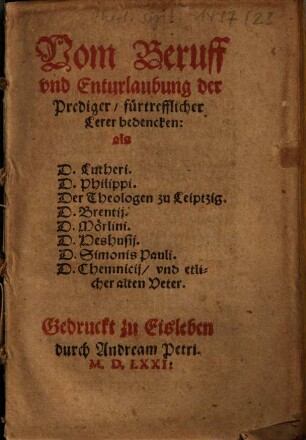 Vom Beruff
vnd Enturlaubung der
Prediger / fürtrefflicher
Lerer bedencken:
als
D. Lutheri.
D. Philippi.
Der Theologen zu Leiptzig.
D. Brentij.
D. Mörlini.
D. Heshusij.
D. Simonis Pauli.
D. Chemnicij / vnd etli-
cher alten Veter.
Gedruckt zu Eisleben
durch Andream Petri.
M. D. LXXI.